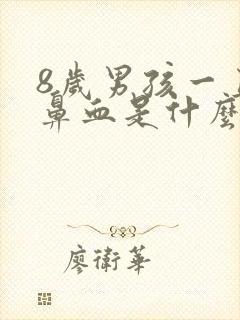 8歲男孩一
鼻血是什麼
廖衛華